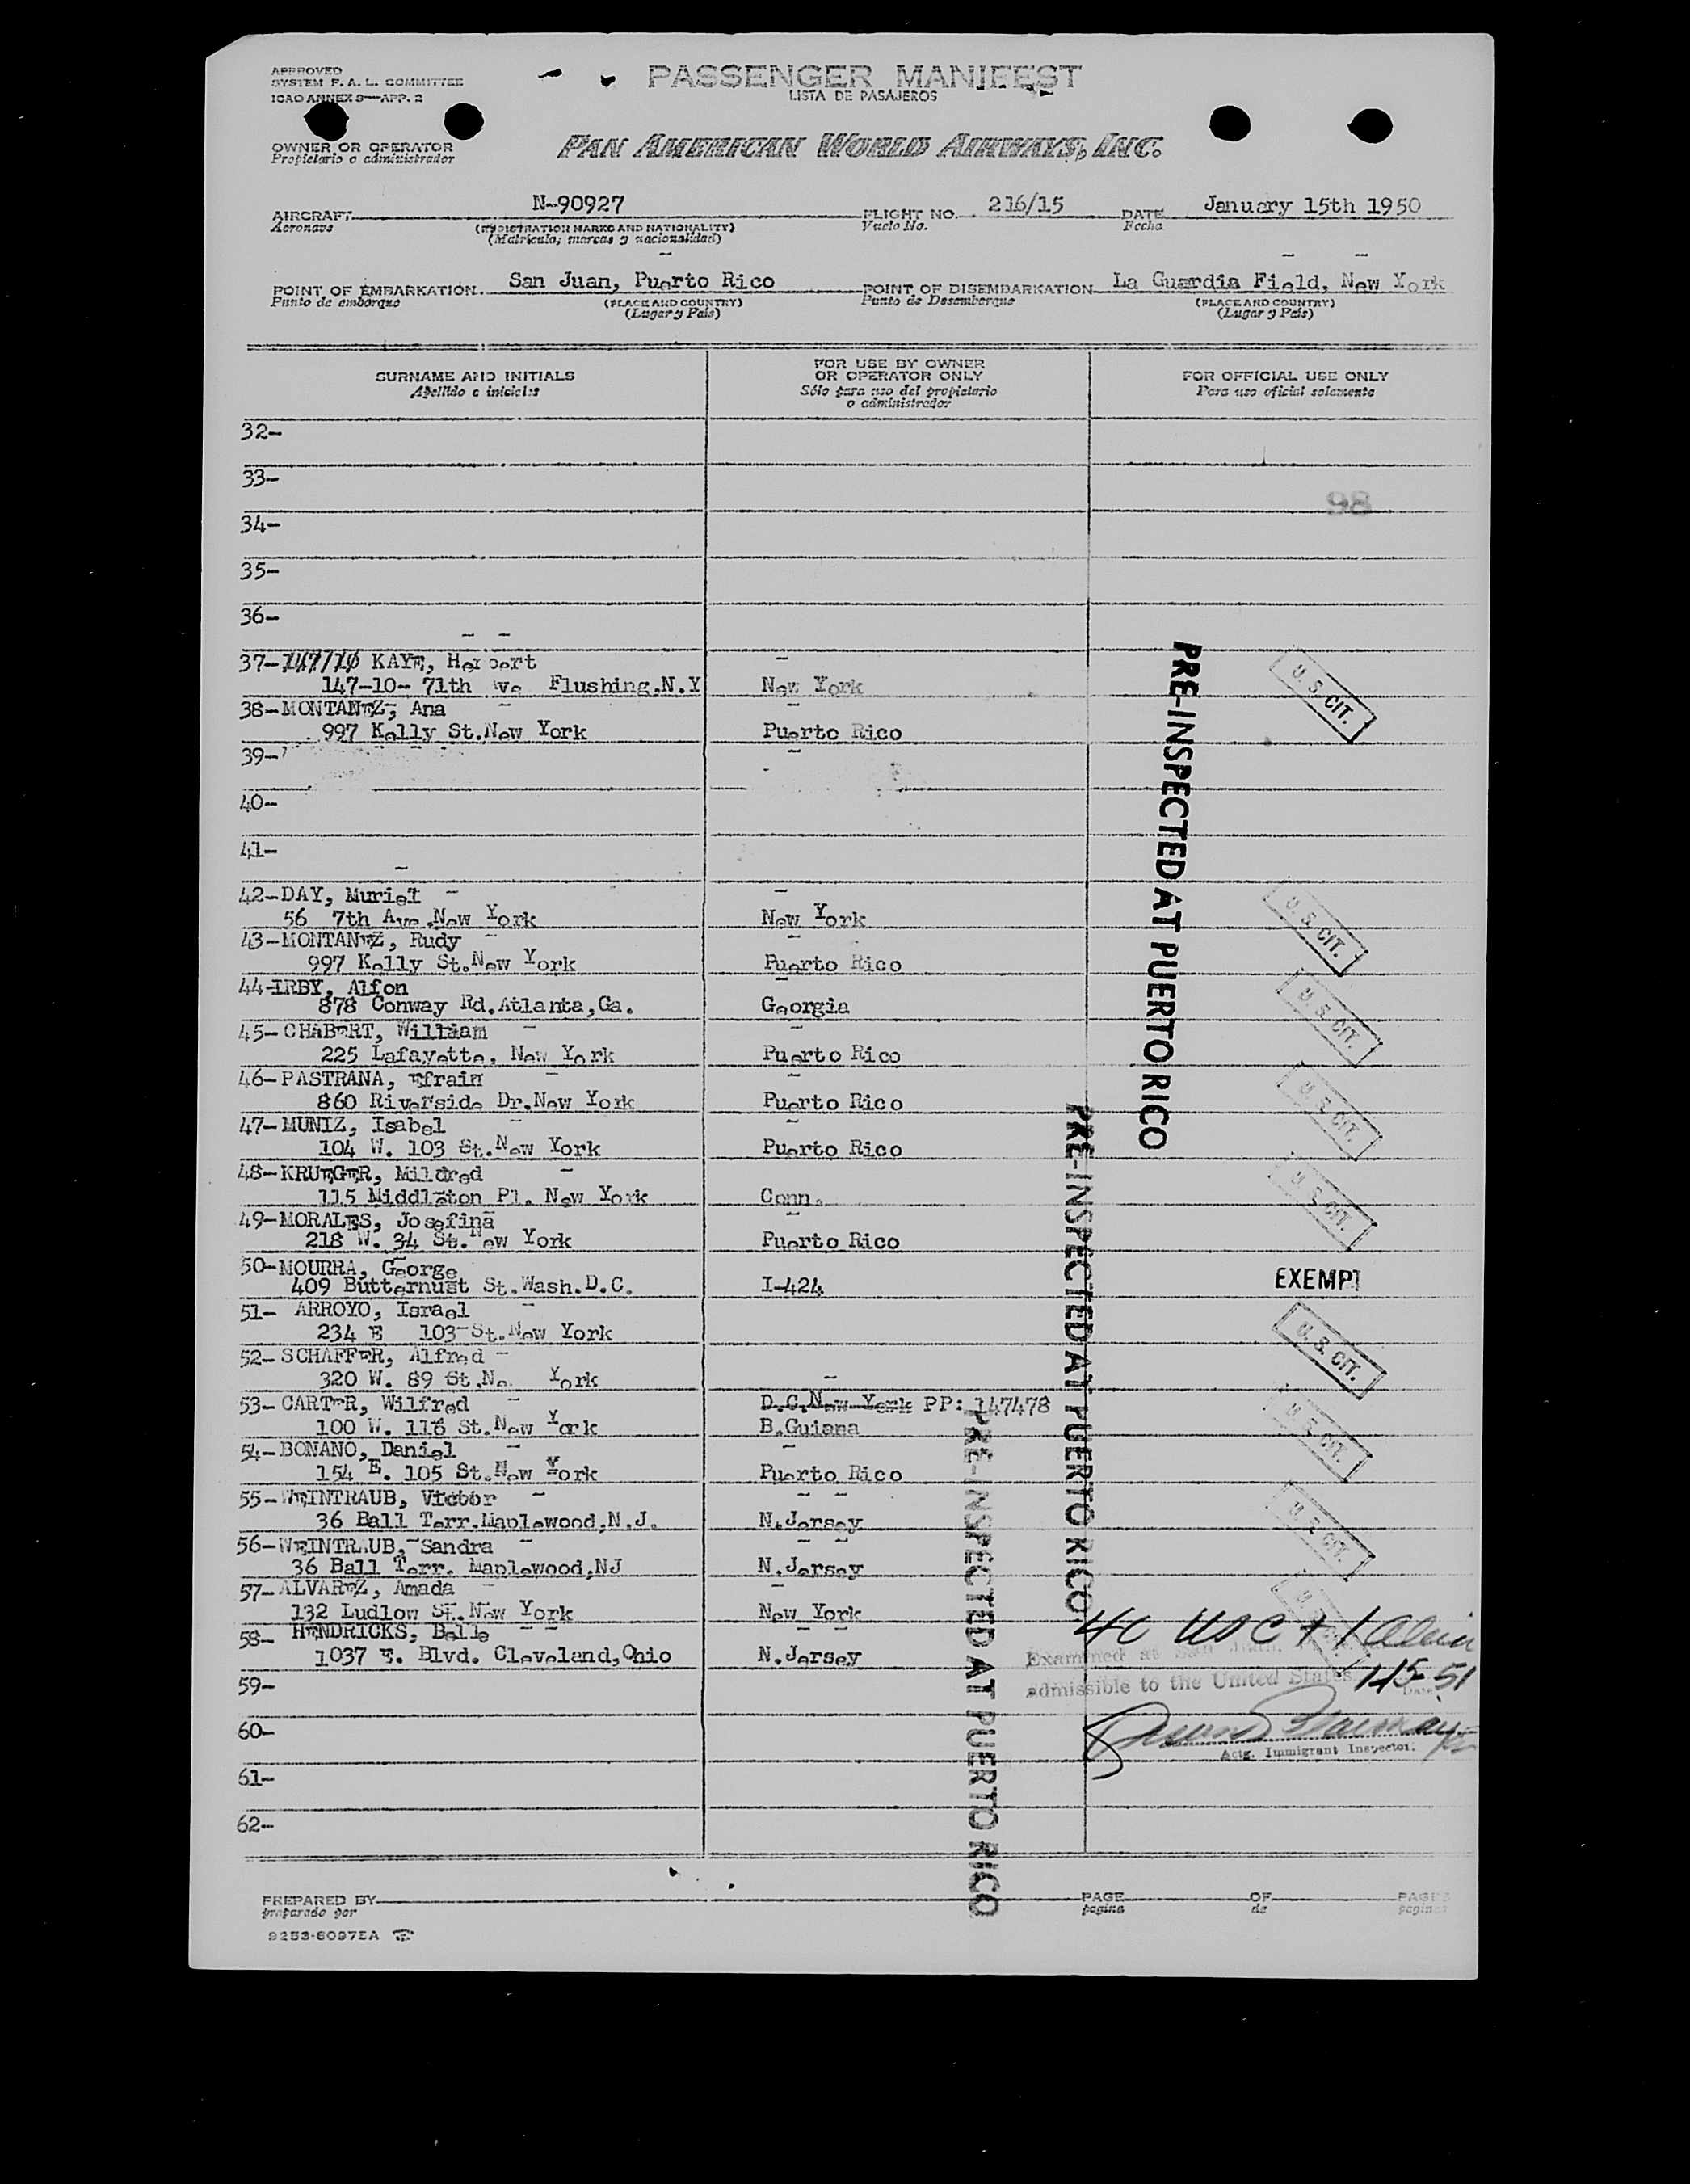 APPROVED
SYSTEM F. A. L. COMMITTEE
ICAO ANNEX 9—APP. 2
PASSENGER MANIFEST
LISTA DE PASAJEROS
OWNER OR OPERATOR
Propietario o administrador
PAN AMERICAN WORLD AIRWAYS, INC.
AIRCRAFT N-90927 FLIGHT NO. 216/15 DATE January 15th 1950
Aeronave (REGISTRATION MARKS AND NATIONALITY) Vuelo No. Fecha
(Matrícula, marcas y nacionalidad)
POINT OF EMBARKATION San Juan, Puerto Rico POINT OF DISEMBARKATION La Guardia Field, New York
Punto de embarque (PLACE AND COUNTRY) Punto de Desembarque (PLACE AND COUNTRY)
(Lugar y País) (Lugar y País)
SURNAME AND INITIALS
Apellido e iniciales
FOR USE BY OWNER
OR OPERATOR ONLY
Sólo para uso del propietario
o administrador
FOR OFFICIAL USE ONLY
Para uso oficial solamente
32-
33-
98
34-
35-
36-
37- 147/10 KAYE, Herbert
147-10- 71th Ave Flushing.N.Y New York U. S. CIT.
38-MONTANEZ, Ana
997 Kelly St.New York Puerto Rico
39-
40-
41-
42-DAY, Muriel
56 7th Ave.New York New York U. S. CIT.
43-MONTANEZ, Rudy
997 Kelly St.New York Puerto Rico
44-IRBY, Alfon
878 Conway Rd.Atlanta,Ga. Georgia U. S. CIT.
45-CHABERT, William
225 Lafayette, New York Puerto Rico
46-PASTRANA, Efrain
860 Riverside Dr.New York Puerto Rico U. S. CIT.
47-MUNIZ, Isabel
104 W. 103 St.New York Puerto Rico
48-KRUEGER, Mildred
115 Middleton Pl. New York Conn. U. S. CIT.
49-MORALES, Josefina
218 W. 34 St.New York Puerto Rico
50-MOURRA, George
409 Butternust St.Wash.D.C. I-424 EXEMPT
51- ARROYO, Israel
234 E 103 St.New York U. S. CIT.
52-SCHAFFER, Alfred
320 W. 89 St.Ne. York
53- CARTER, Wilfred D.C.New York PP: 147478
100 W. 118 St.New York B.Guiana U. S. CIT.
54-BONANO, Daniel
154 E. 105 St.New York Puerto Rico
55-WEINTRAUB, Victor
36 Ball Terr.Maplewood,N.J. N.Jersey U. S. CIT.
56-WEINTRAUB, Sandra
36 Ball Terr. Maplewood,NJ N.Jersey
57-ALVAREZ, Amada
132 Ludlow St.New York New York
58- HENDRICKS, Belle
1037 E. Blvd. Cleveland,Ohio N.Jersey
40 USC + 1 Alien
Examined at San Juan,
admissible to the United States 1-15-51
Date
59-
60-
Actg. Immigrant Inspector.
61-
62-
PRE-INSPECTED AT PUERTO RICO
PRE-INSPECTED AT PUERTO RICO
PRE-INSPECTED AT PUERTO RICO
PREPARED BY PAGE OF PAGES
preparado por pagina de paginas
8253-6097EA